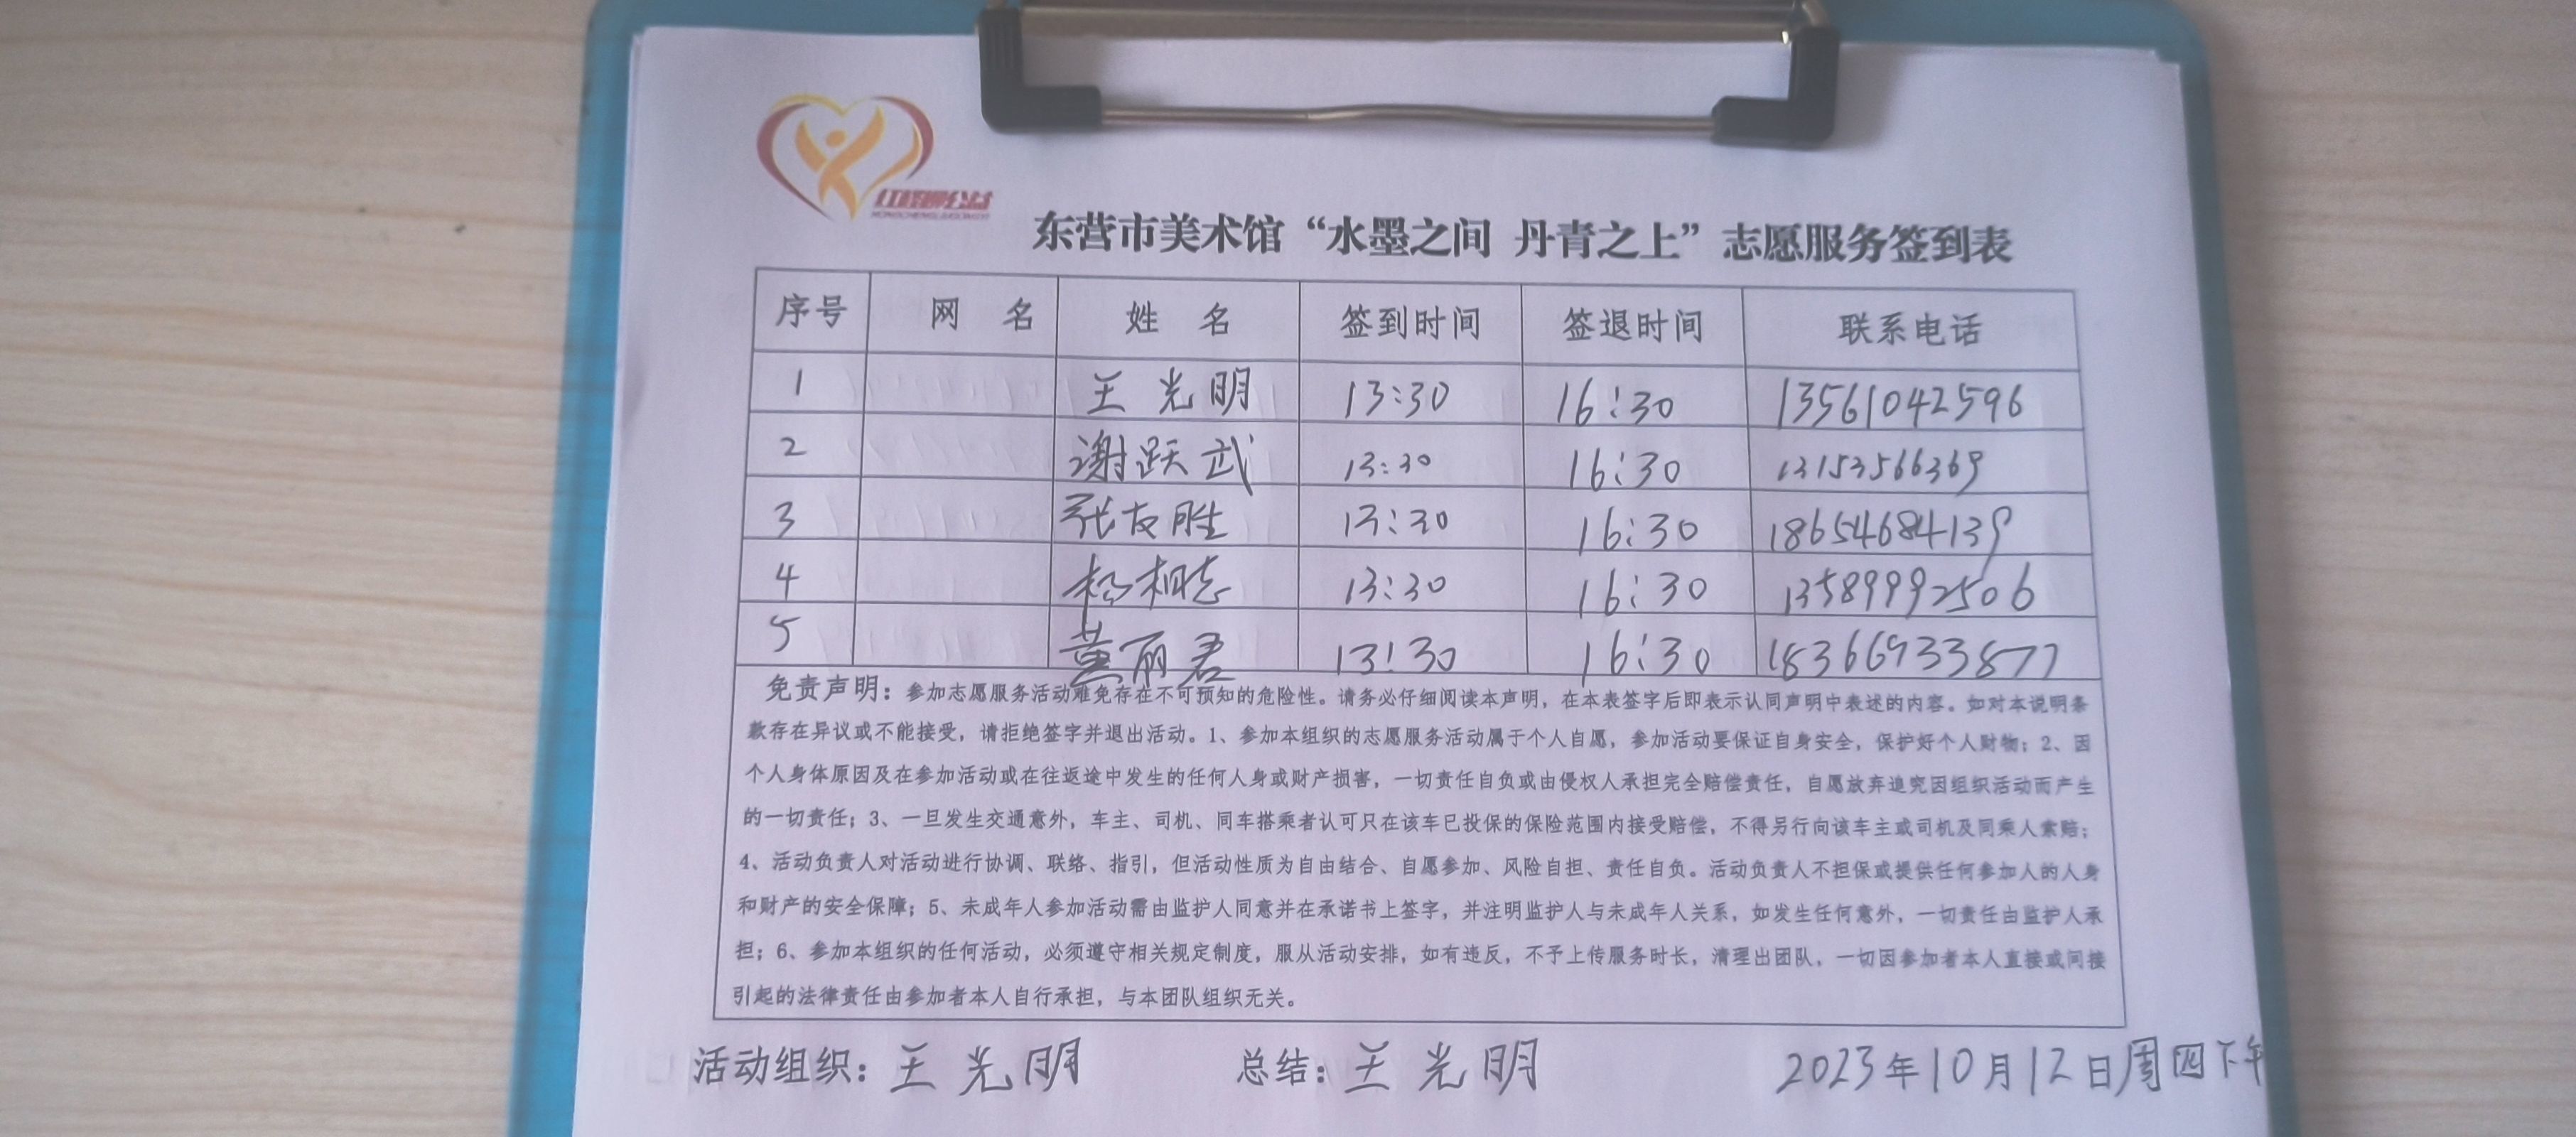 红程呗公益
东营市美术馆“水墨之间 丹青之上”志愿服务签到表
序号 网 名 姓 名 签到时间 签退时间 联系电话
1 王光明 13:30 16:30 13561042596
2 谢跃武 13:30 16:30 13153566369
3 张友胜 13:30 16:30 18654684139
4 杨相志 13:30 16:30 13589992506
5 黄丽君 13:30 16:30 18366933877
免责声明：参加志愿服务活动难免存在不可预知的危险性。请务必仔细阅读本声明，在本表签字后即表示认同声明中表述的内容。如对本说明条
款存在异议或不能接受，请拒绝签字并退出活动。1、参加本组织的志愿服务活动属于个人自愿，参加活动要保证自身安全，保护好个人财物；2、因
个人身体原因及在参加活动或在往返途中发生的任何人身或财产损害，一切责任自负或由侵权人承担完全赔偿责任，自愿放弃追究因组织活动而产生
的一切责任；3、一旦发生交通意外，车主、司机、同车搭乘者认可只在该车已投保的保险范围内接受赔偿，不得另行向该车主或司机及同乘人索赔；
4、活动负责人对活动进行协调、联络、指引，但活动性质为自由结合、自愿参加、风险自担、责任自负。活动负责人不担保或提供任何参加人的人身
和财产的安全保障；5、未成年人参加活动需由监护人同意并在承诺书上签字，并注明监护人与未成年人关系，如发生任何意外，一切责任由监护人承
担；6、参加本组织的任何活动，必须遵守相关规定制度，服从活动安排，如有违反，不予上传服务时长，清理出团队，一切因参加者本人直接或间接
引起的法律责任由参加者本人自行承担，与本团队组织无关。
活动组织：王光明 总结：王光明 2023年10月12日周四下午